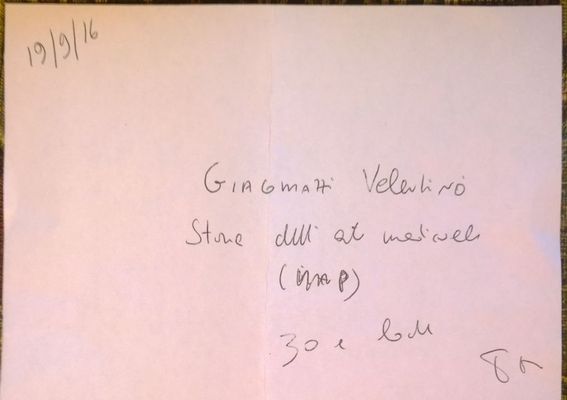 19/9/16
Giacomazzi Valentino
Storia dell'arte medievale
30 e lode